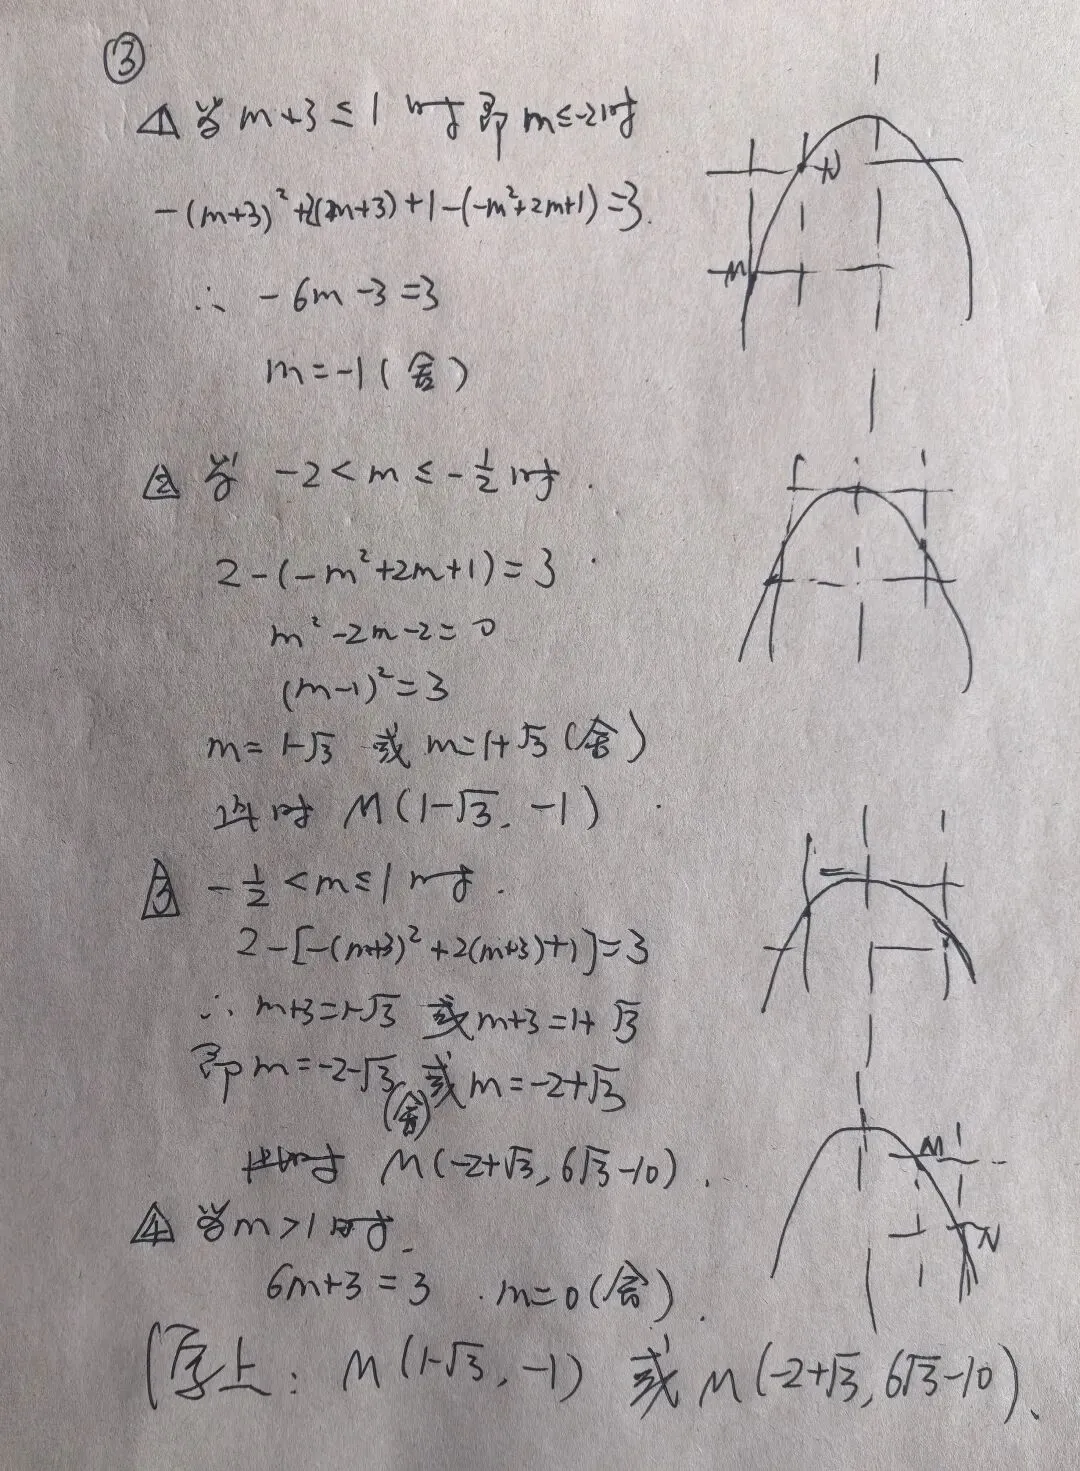 ③
△1 当 m+3 ≤ 1 时 即 m≤-2时
-(m+3)²+2(m+3)+1-(-m²+2m+1)=3.
∴ -6m-3=3
m=-1(舍)
△2 当 -2<m≤-1/2 时.
2-(-m²+2m+1)=3
m²-2m-2=0
(m-1)²=3
m=1-√3 或 m=1+√3(舍)
此时 M(1-√3,-1)
△3 -1/2<m≤1 时.
2-[-(m+3)²+2(m+3)+1]=3
∴ m+3=1-√3 或 m+3=1+√3
即 m=-2-√3(舍) 或 m=-2+√3
此时 M(-2+√3, 6√3-10).
△4 当m>1时.
6m+3=3 . m=0(舍).
综上: M(1-√3,-1) 或 M(-2+√3, 6√3-10).
N
M
M
N